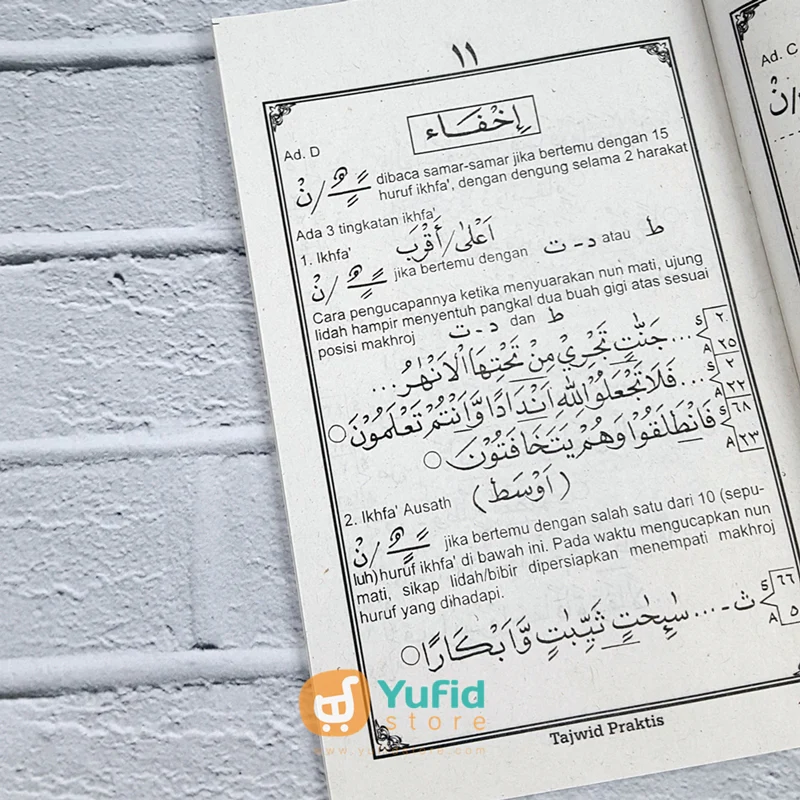 ١١
إِخْفَاء
Ad. D
نْ / ـًـٍـٌ dibaca samar-samar jika bertemu dengan 15
huruf ikhfa', dengan dengung selama 2 harakat
Ada 3 tingkatan ikhfa'
1. Ikhfa' اَعْلٰى/أَقْرَبْ
نْ / ـًـٍـٌ jika bertemu dengan د - ت atau ط
Cara pengucapannya ketika menyuarakan nun mati, ujung
lidah hampir menyentuh pangkal dua buah gigi atas sesuai
posisi makhroj د - ت dan ط
... جَنّٰتٍ تَجْرِيْ مِنْ تَحْتِهَا الْاَنْهٰرُ ... S ٢ A ٢٥
... فَلَا تَجْعَلُوْا لِلّٰهِ اَنْدَادًا وَّاَنْتُمْ تَعْلَمُوْنَ ○ S ٢ A ٢٢
فَانْطَلَقُوْا وَهُمْ يَتَخَافَتُوْنَ ○ S ٦٨ A ٢٣
2. Ikhfa' Ausath (اَوْسَط)
نْ / ـًـٍـٌ jika bertemu dengan salah satu dari 10 (sepu-
luh) huruf ikhfa' di bawah ini. Pada waktu mengucapkan nun
mati, sikap lidah/bibir dipersiapkan menempati makhroj
huruf yang dihadapi.
ث - ... سٰۤىِٕحٰتٍ ثَيِّبٰتٍ وَّاَبْكَارًا ○ S ٦٦ A ٥
Tajwid Praktis
Ad. C
نْ
Yufid
store